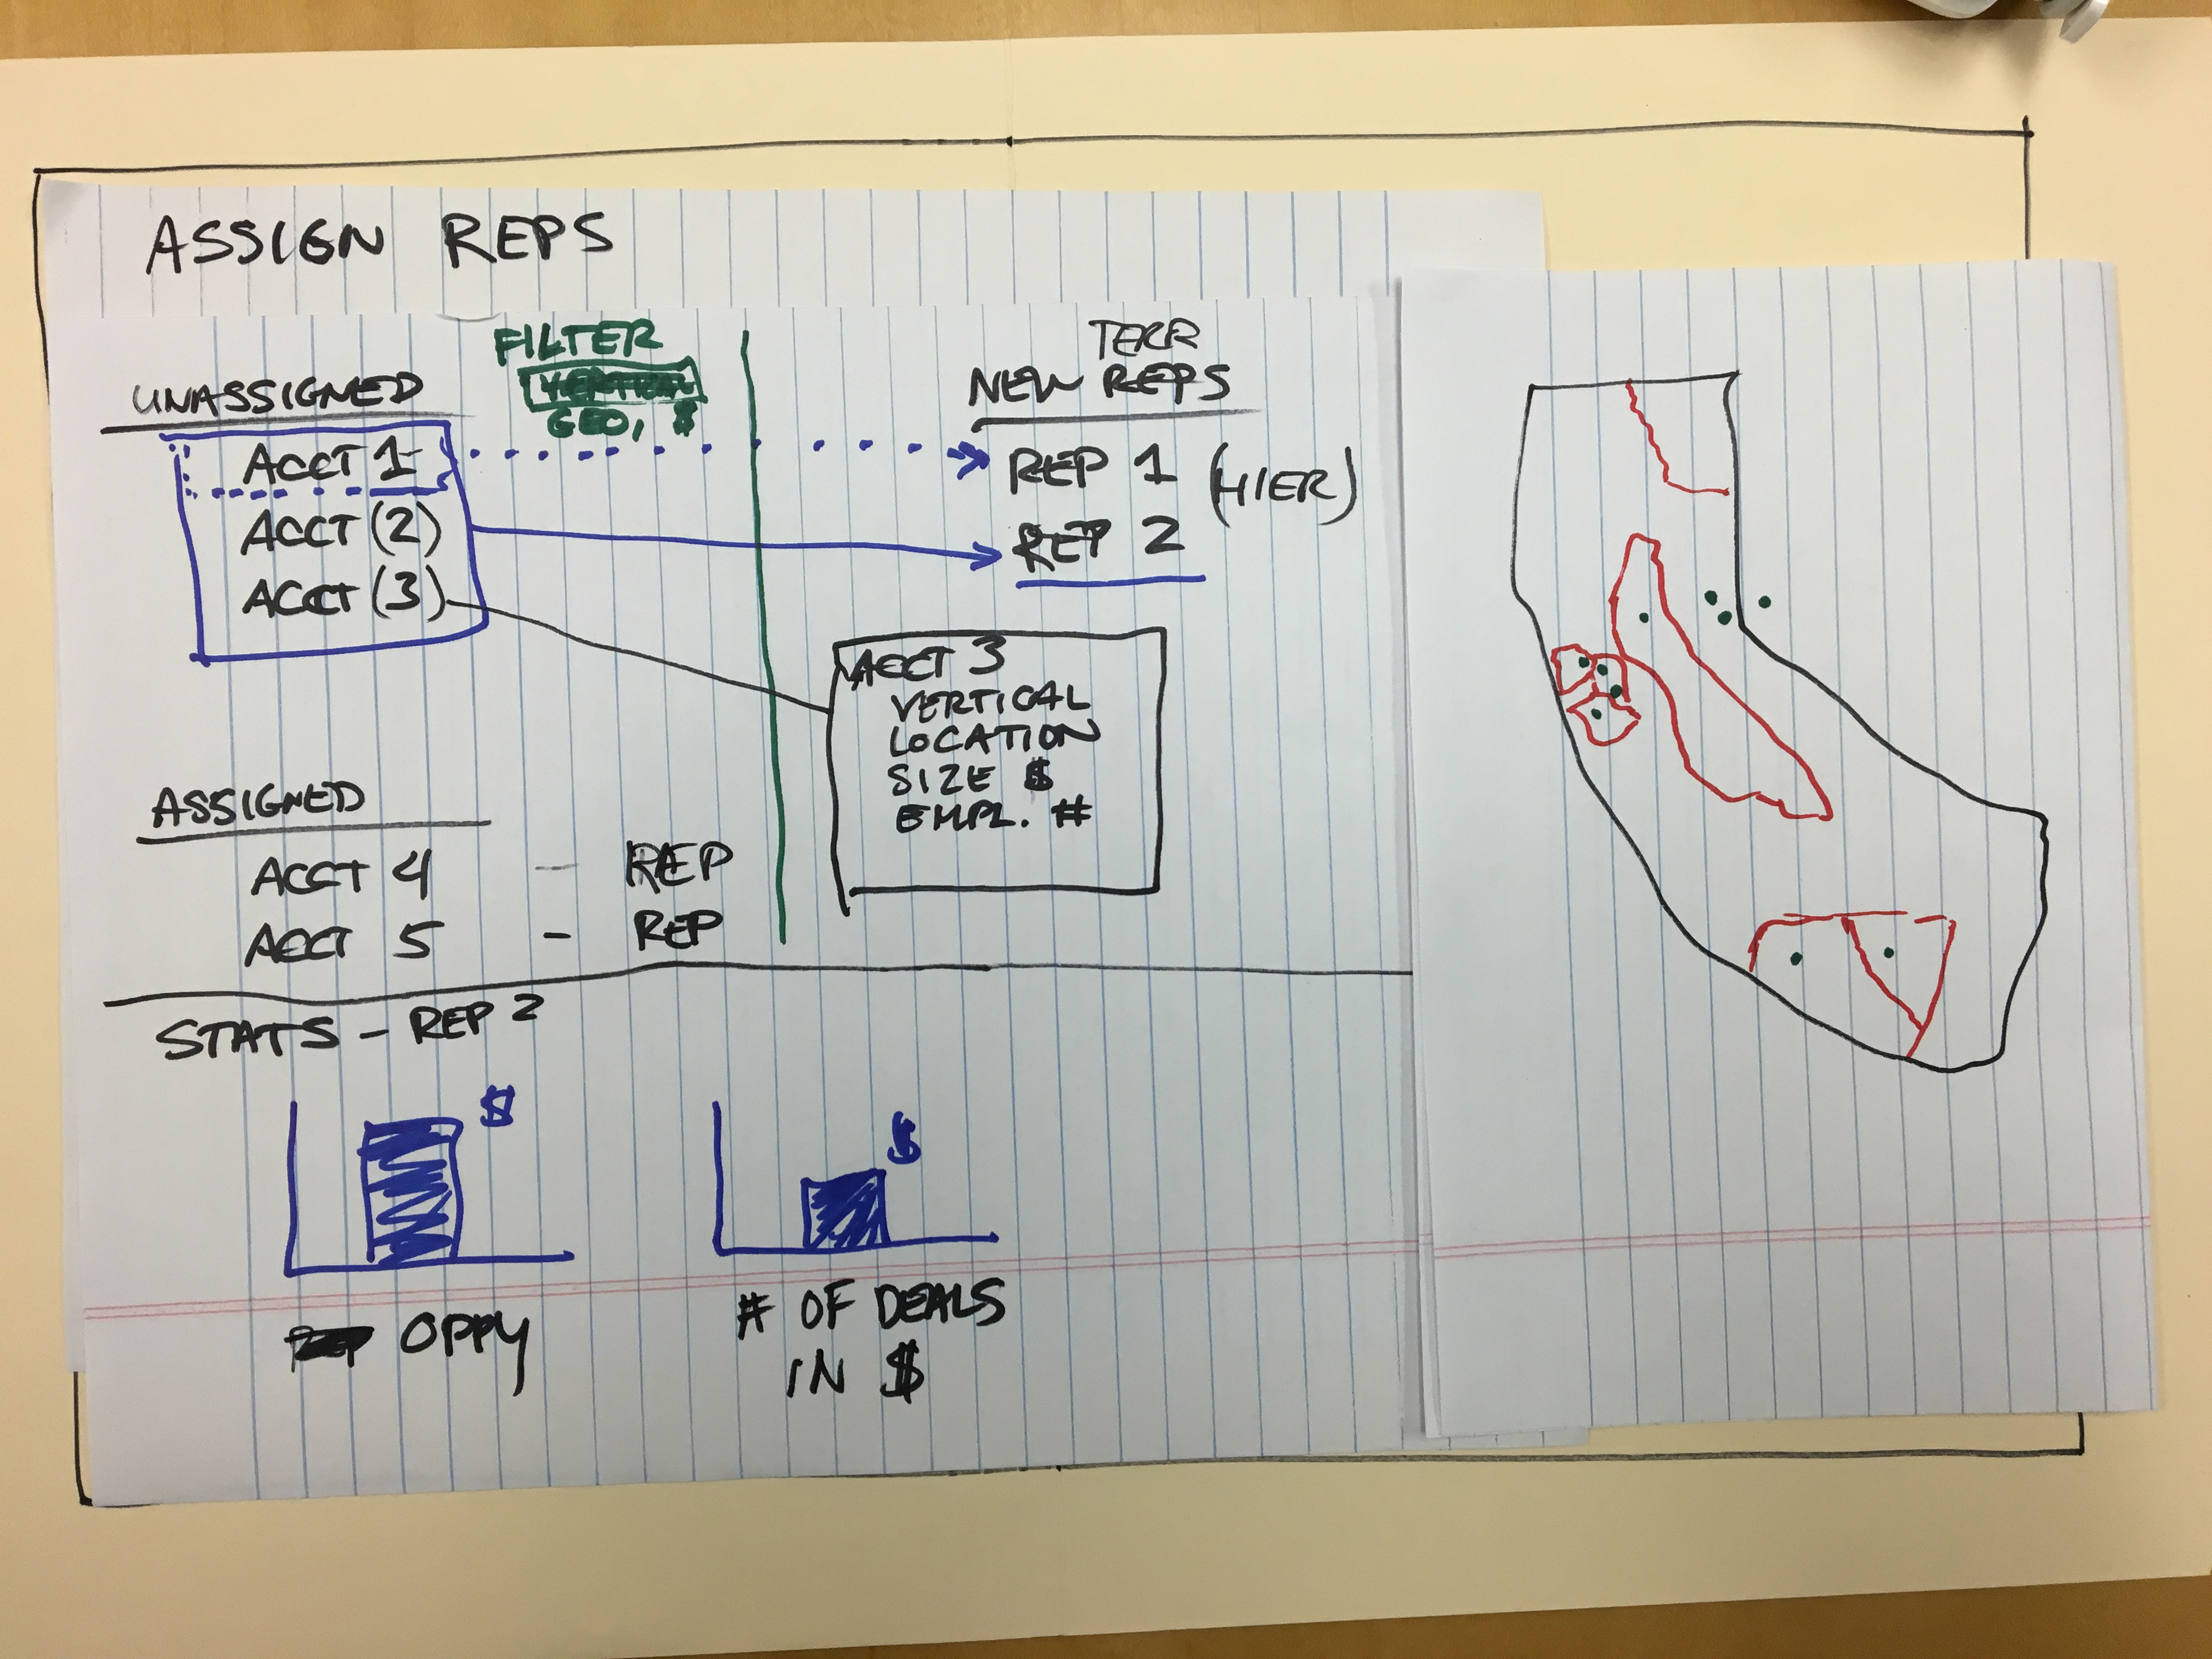 ASSIGN REPS
FILTER
VERTICAL
GEO, $
UNASSIGNED
ACCT 1
ACCT (2)
ACCT (3)
TERR
NEW REPS
REP 1 (HIER)
REP 2
ACCT 3
VERTICAL
LOCATION
SIZE $
EMPL. #
ASSIGNED
ACCT 4 - REP
ACCT 5 - REP
STATS - REP 2
$
OPPY
$
# OF DEALS
IN $